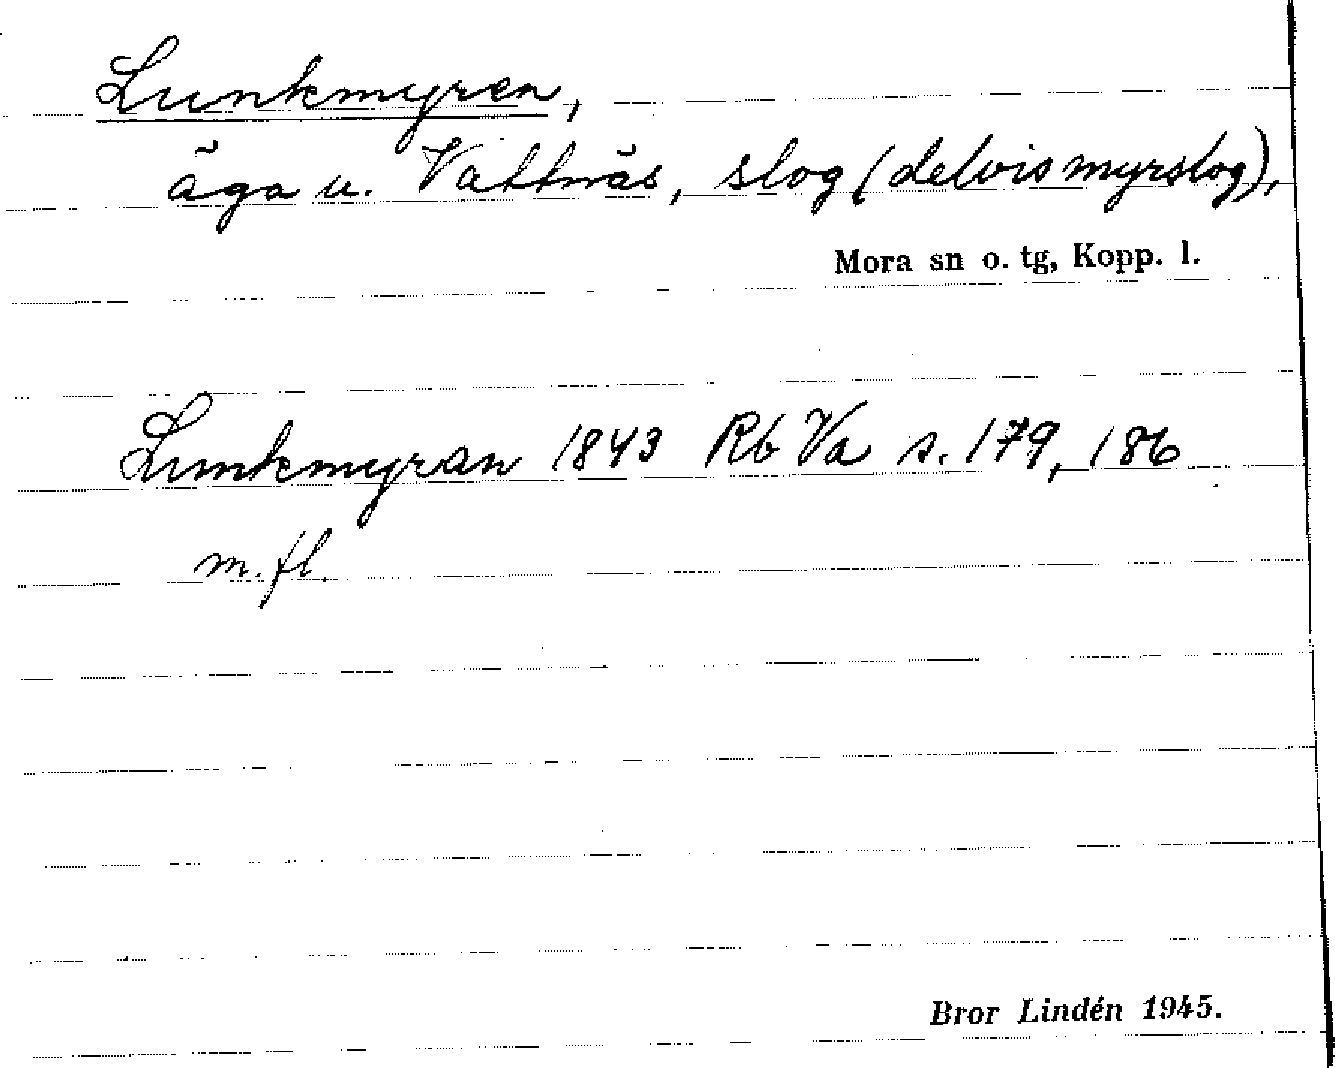 Lunkmyren,
äga u. Vattnäs, slog (delvis myrslog),
Mora sn o. tg, Kopp. l.
Lunkmyran 1843 Rb Va s. 179, 186
m. fl.
Bror Lindén 1945.